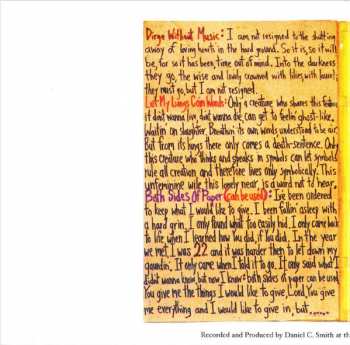 Dirge Without Music: I am not resigned to the shutting
away of loving hearts in the hard ground. So it is, so it will
be, for so it has been, time out of mind. Into the darkness
they go, the wise and lovely crowned with lilies, with laurel;
they must go, but I am not resigned.
Let My Lungs Coin Words: Only a creature who shares this feeling,
it didnt wanna live, didnt wanna die can get to feelin' ghost-like.
Waitin' on slaughter. Breathin' its own words understood to be air
But from its lungs there only comes a death-sentence. Only
this creature who thinks and speaks in symbols can let symbols
rule all creation and therefore lives only symbolically. This
unfeminine wile this lonely near is a word not to hear.
Both Sides Of Paper (can be used): I've been ordered
to keep what I would like to give. I been fallin' asleep with
a hard grin. I only found what too easily hid. I only came back
to life when I learned how you did, if you did. In the year
we met, I was 22 and it was harder then to let down my
guardin'. It only came when I told it to go. It only said what I
didnt wanna know, but now I know: both sides of paper can be used.
You give me the things I would like to give, Lord, You give
me everything and I would like to give in, but......
Recorded and Produced by Daniel C. Smith at th